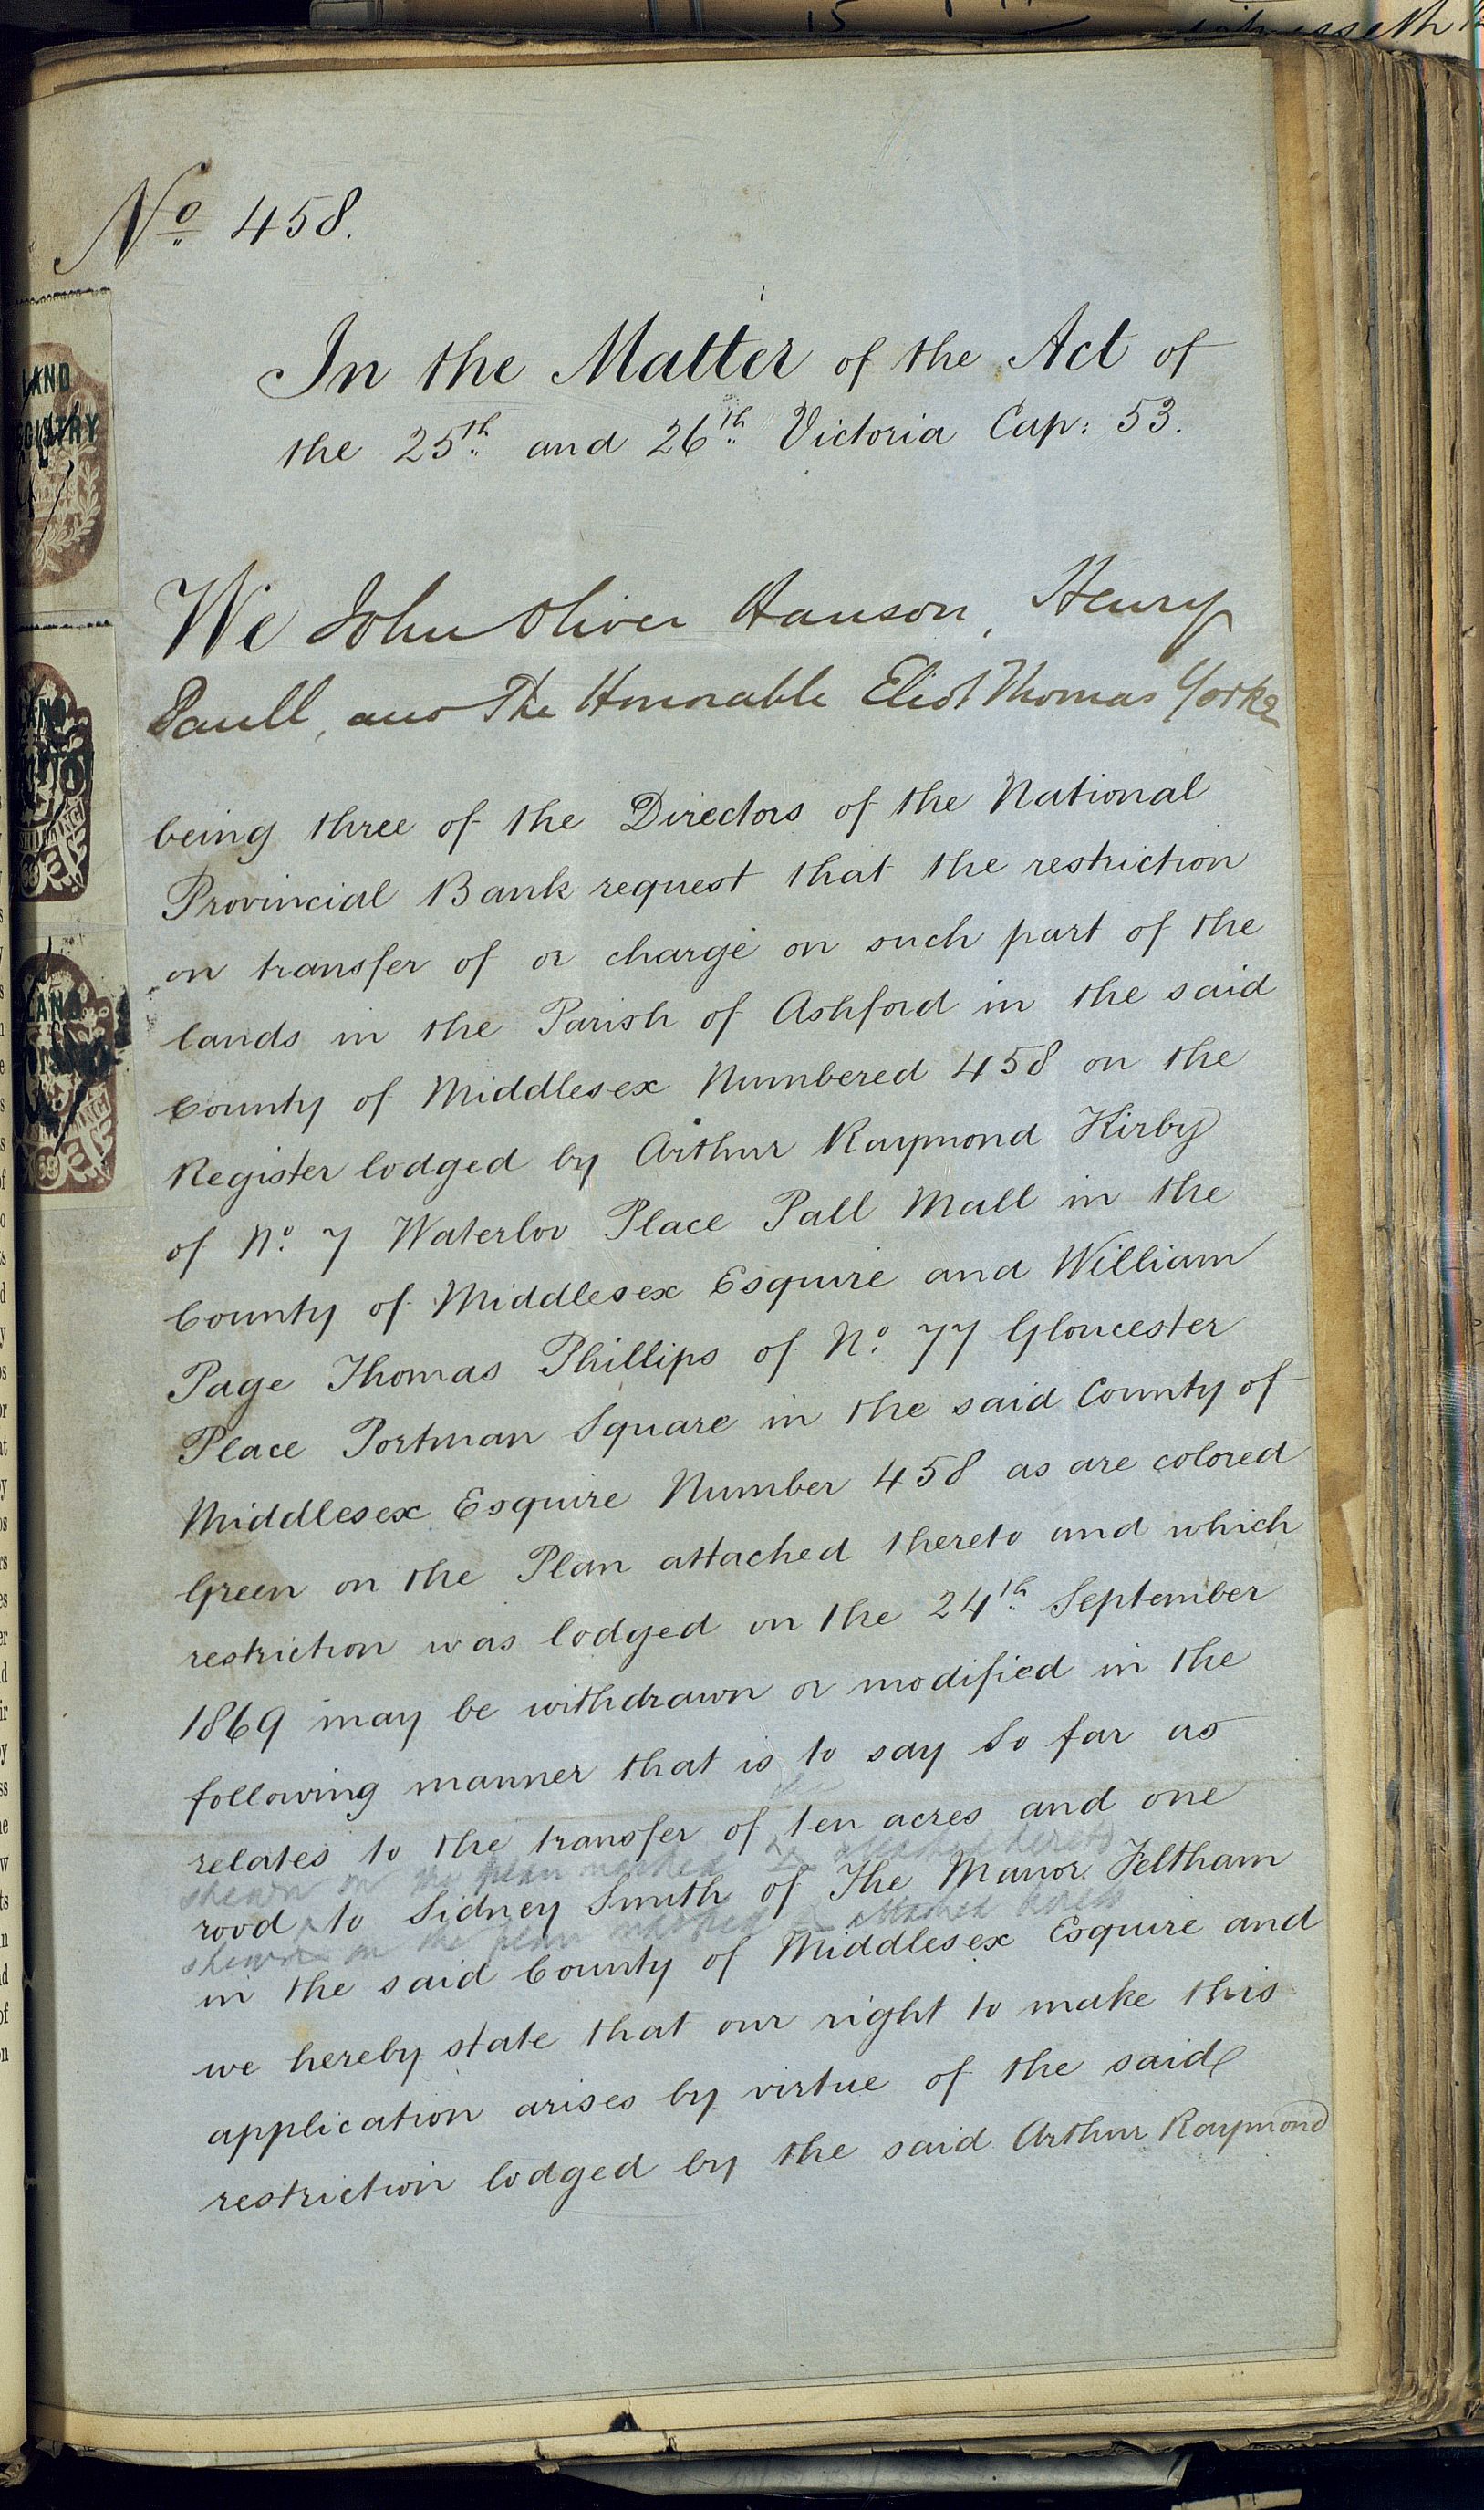 witnesseth
No 458.
In the Matter of the Act of
the 25th and 26th Victoria Cap: 53.
We John Oliver Hanson, Henry
Paull, and The Honorable Eliot Thomas Yorke
being three of the Directors of the National
Provincial Bank request that the restriction
on transfer of or charge on such part of the
lands in the Parish of Ashford in the said
County of Middlesex Numbered 458 on the
Register lodged by Arthur Raymond Kirby
of No. 7 Waterloo Place Pall Mall in the
County of Middlesex Esquire and William
Page Thomas Phillips of No. 77 Gloucester
Place Portman Square in the said County of
Middlesex Esquire Number 458 as are colored
Green on the Plan attached thereto and which
restriction was lodged on the 24th September
1869 may be withdrawn or modified in the
following manner that is to say So far as
relates to the transfer of ten acres and one
shewn on the plan marked attached hereto
rood to Sidney Smith of The Manor Feltham
shewn on the plan marked attached hereto
in the said County of Middlesex Esquire and
we hereby state that our right to make this
application arises by virtue of the said
restriction lodged by the said Arthur Raymond
LAND
REGISTRY
LAND